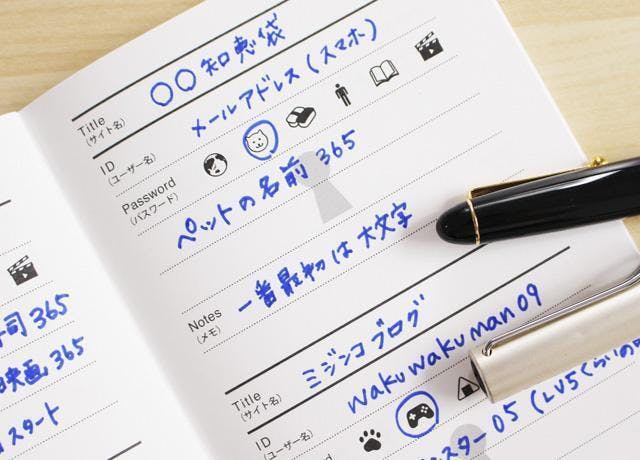 Title
(サイト名)
〇〇知恵袋
ID
(ユーザー名)
メールアドレス(スマホ)
Password
(パスワード)
ペットの名前365
Notes
(メモ)
一番最初は大文字
Title
(サイト名)
ミジンコブログ
ID
(ユーザー名)
wakuwakuman09
スター05(LV5くらいの
司365
映画365
スタート